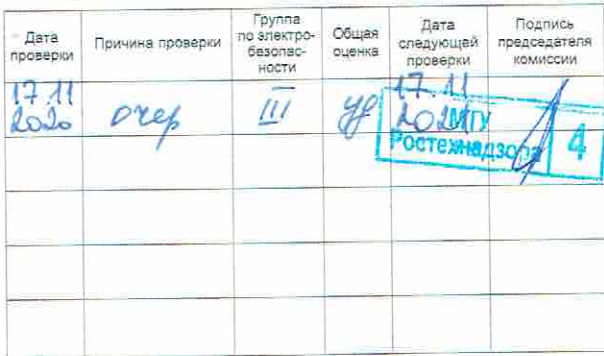 Дата проверки
Причина проверки
Группа по электро-безопас-ности
Общая оценка
Дата следующей проверки
Подпись председателя комиссии
17.11
2020
очер
III
уд
17.11
2021
МТУ
Ростехнадзора
4